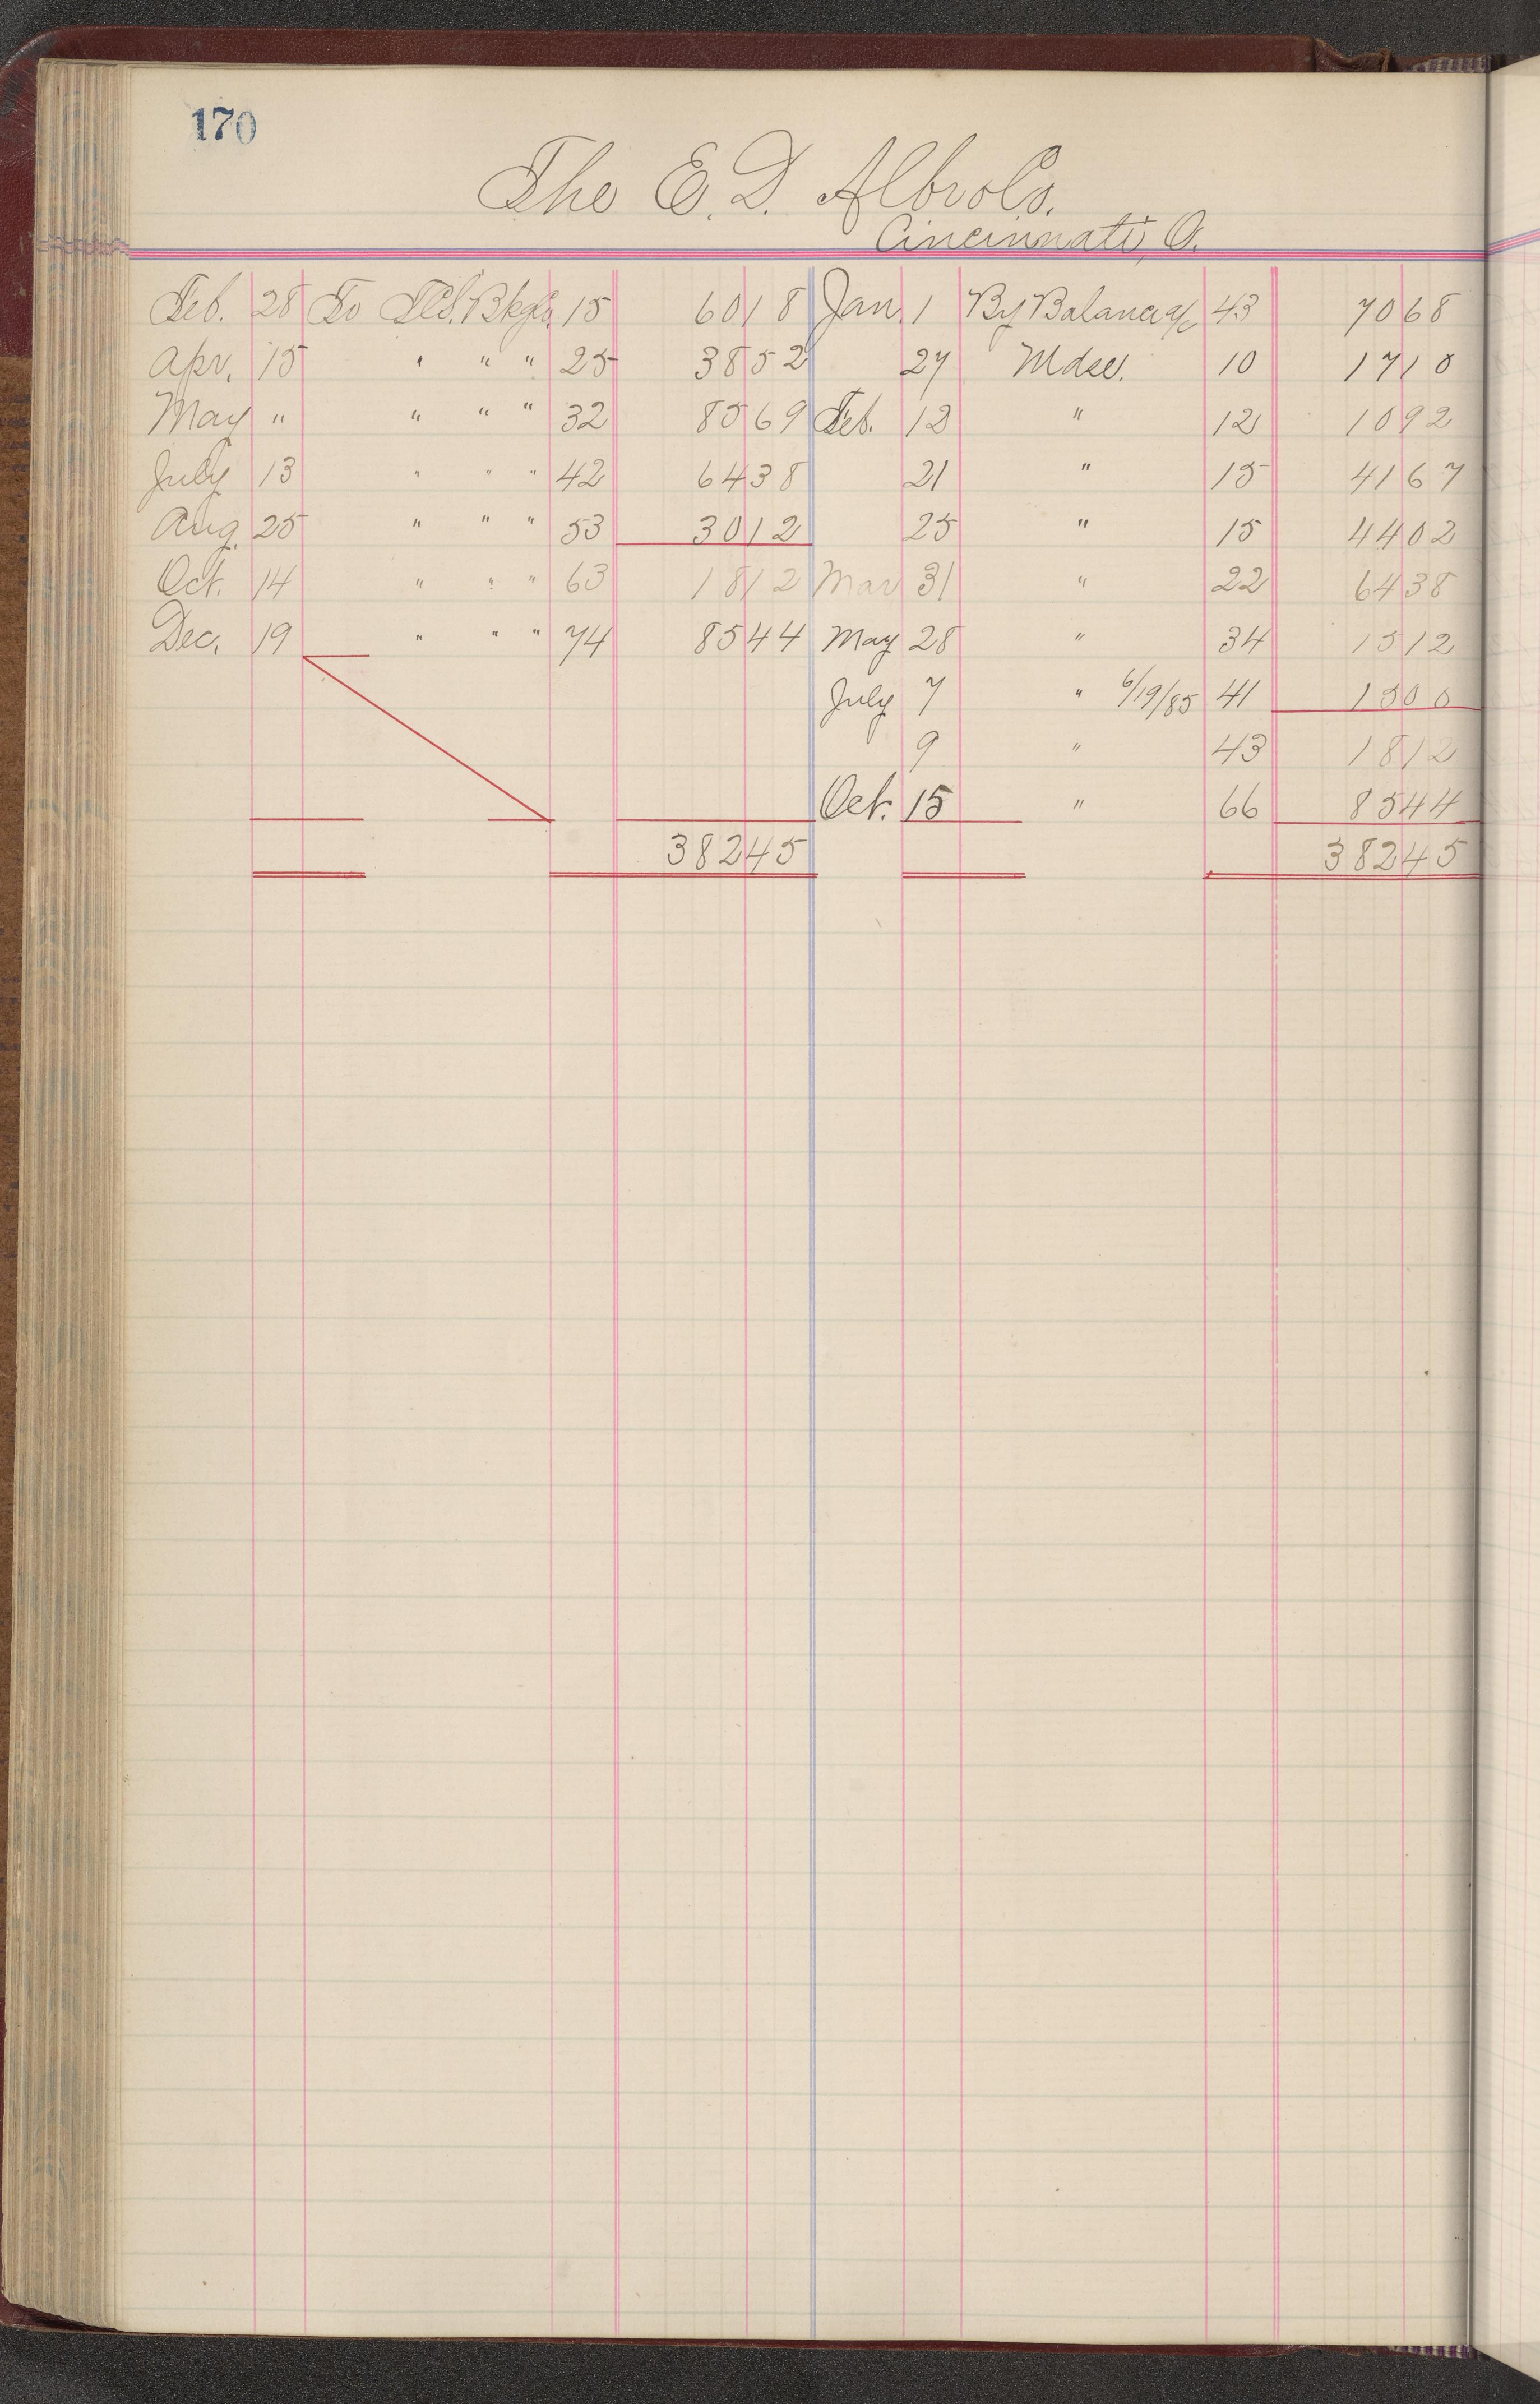 170
The E. D. Albro Co.
Cincinnati, O.
Feb. 28 To Bkg Co. 15 60 18 Jan. 1 By Balance a/c 43 70 68
Apr. 15 " " " 25 38 52 27 Mdse. 10 17 10
May " " " " 32 85 69 Feb. 12 " 12 10 92
July 13 " " " 42 64 38 21 " 15 41 67
Aug. 25 " " " 53 30 12 25 " 15 44 02
Oct. 14 " " " 63 18 12 Mar 31 " 22 64 38
Dec. 19 " " " 74 85 44 May 28 " 34 15 12
July 7 " 6/19/85 41 15 00
9 " 43 18 12
Oct. 15 " 66 85 44
382 45 382 45